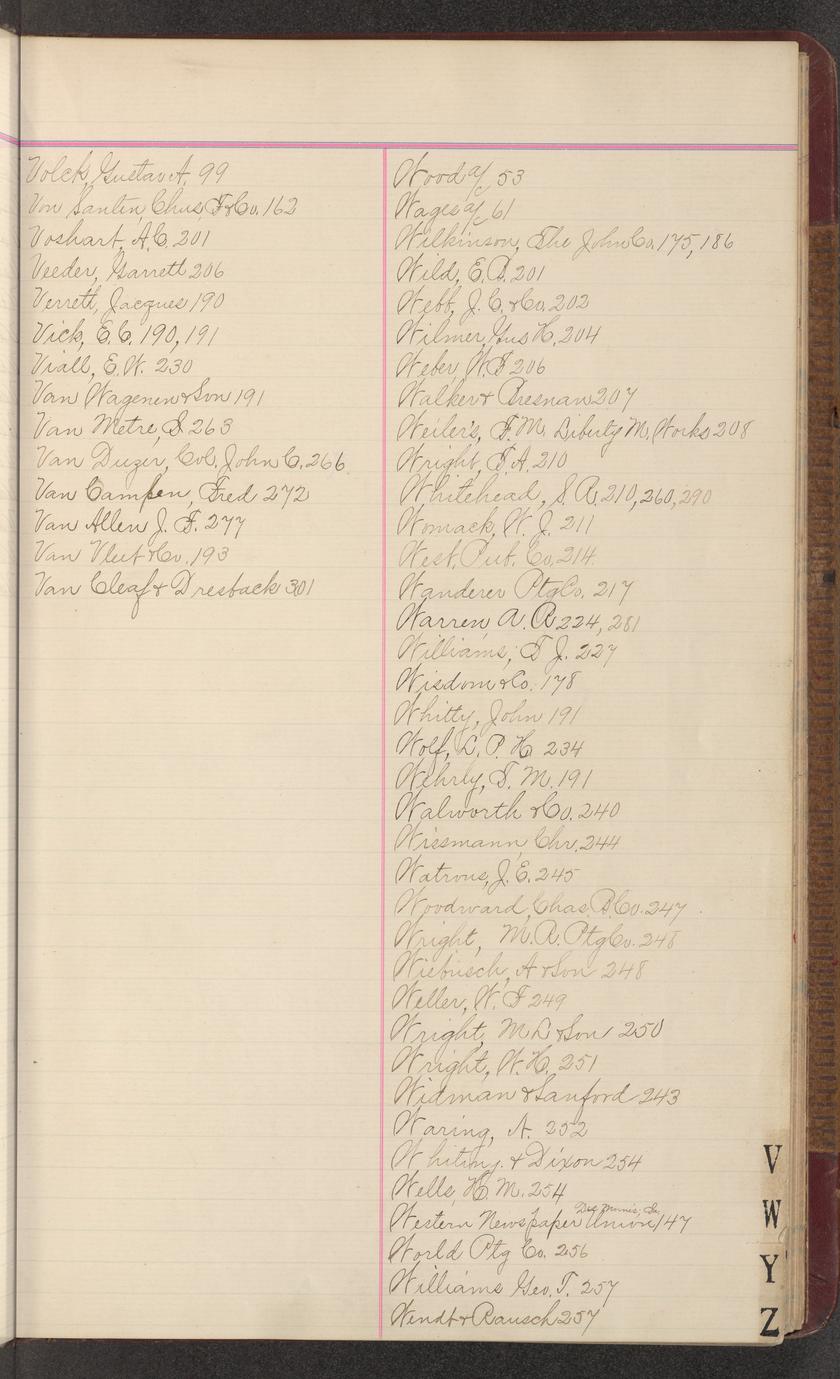 Volck, Gustav A. 99
Von Santen, Chus, F & Co. 162
Voshart, A.C. 201
Veeder, Garrett 206
Verrett, Jacques 190
Vick, E.C. 190, 191
Viall, E.W. 230
Van Wagenen & Son 191
Van Metre, S. 263
Van Duzer, Col. John C. 266
Van Campen, Fred 272
Van Allen J. F. 277
Van Vleet & Co. 193
Van Cleaf & Dresback 301
Wood a/c 53
Wages a/c 61
Wilkinson, The John Co. 175, 186
Wild, E.P. 201
Webb, J.C. & Co. 202
Wilmer, Gus H. 204
Weber, W.F 206
Walker & Bresnan 207
Weiler's, F.M. Liberty M. Works 208
Wright, F.A. 210
Whitehead, S.R. 210, 260, 290
Womack, W.J. 211
West. Pub. Co. 214
Wanderer Ptg Co. 217
Warren A.R 224, 281
Williams, T J. 227
Wisdom & Co. 178
Whitty, John 191
Wolf, L.P.H 234
Wehrly, S.M. 191
Walworth & Co. 240
Wissmann Chr. 244
Watrous, J.E. 245
Woodward, Chas. P. Co. 247
Wright, M.R. Ptg Co. 248
Wiebusch, A & Son 248
Weller, W.F 249
Wright, M L & Son 250
Wright, W.H. 251
Widman & Sanford 243
Waring, A. 252
Whiting & Dixon 254
Wells, H.M. 254
Western Newspaper Union, Des Moines, Ia. 147
World Ptg Co. 256
Williams Geo. T. 257
Wendt & Rausch 257
V
W
Y
Z